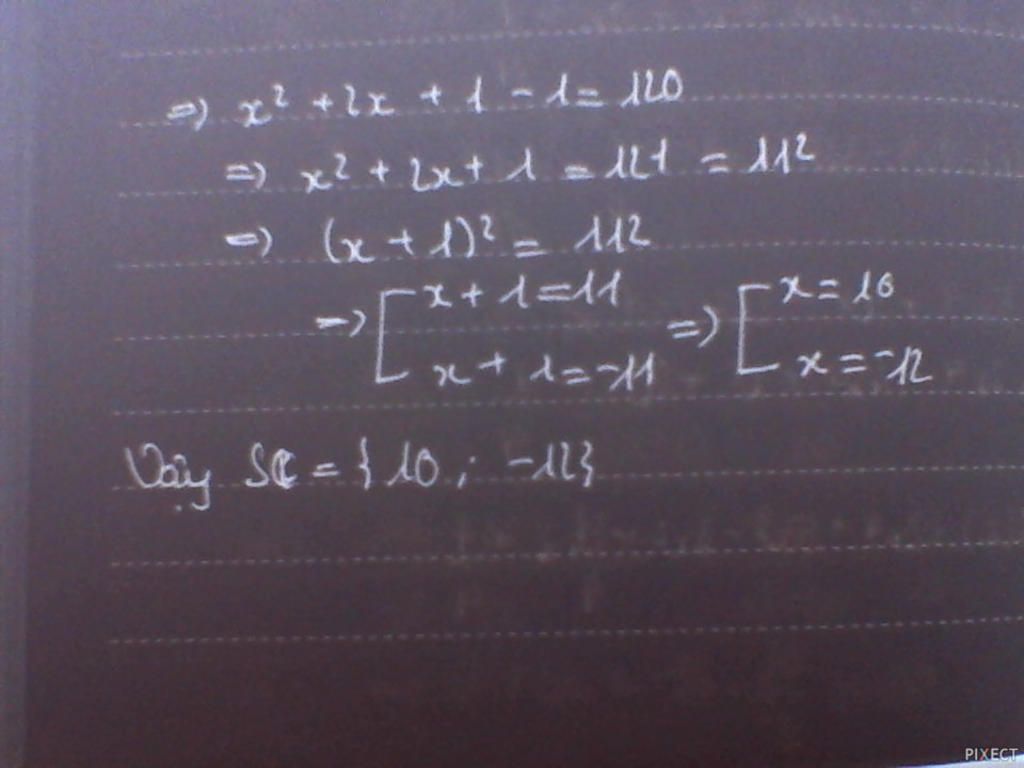 =) x² + 2x + 1 - 1 = 120
=) x² + 2x + 1 = 121 = 11²
=) (x + 1)² = 11²
=) [ x + 1 = 11 =) [ x = 10
x + 1 = -11 x = -12
Vậy = {10 ; -12}
PIXECT